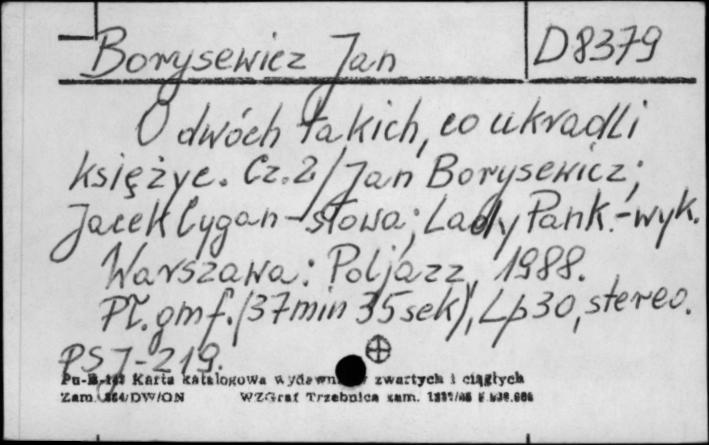 Borysewicz Jan D8379
O dwóch takich, co ukradli
księżyc. Cz.2/Jan Borysewicz;
Jacek Cygan - słowa; Lady Pank.-wyk.
Warszawa: Poljazz, 1988.
Pł. gmf. (37min 35sek), Lp30, stereo.
PSJ-219.
Karta katalogowa zwartych i ciągłych
Zam. WZGraf Trzebnica zam.